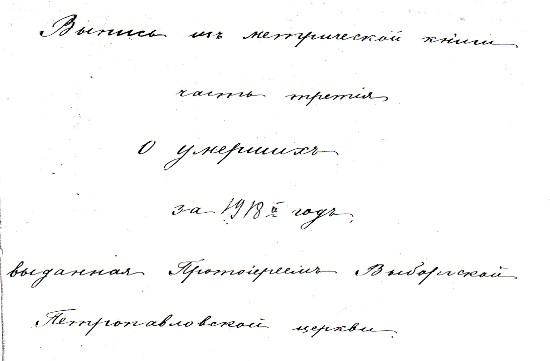 Выпись изъ метрической книги
часть третія
О умершихъ
за 1918й годъ.
выданная Протоіереемъ Выборгской
Петропавловской церкви.